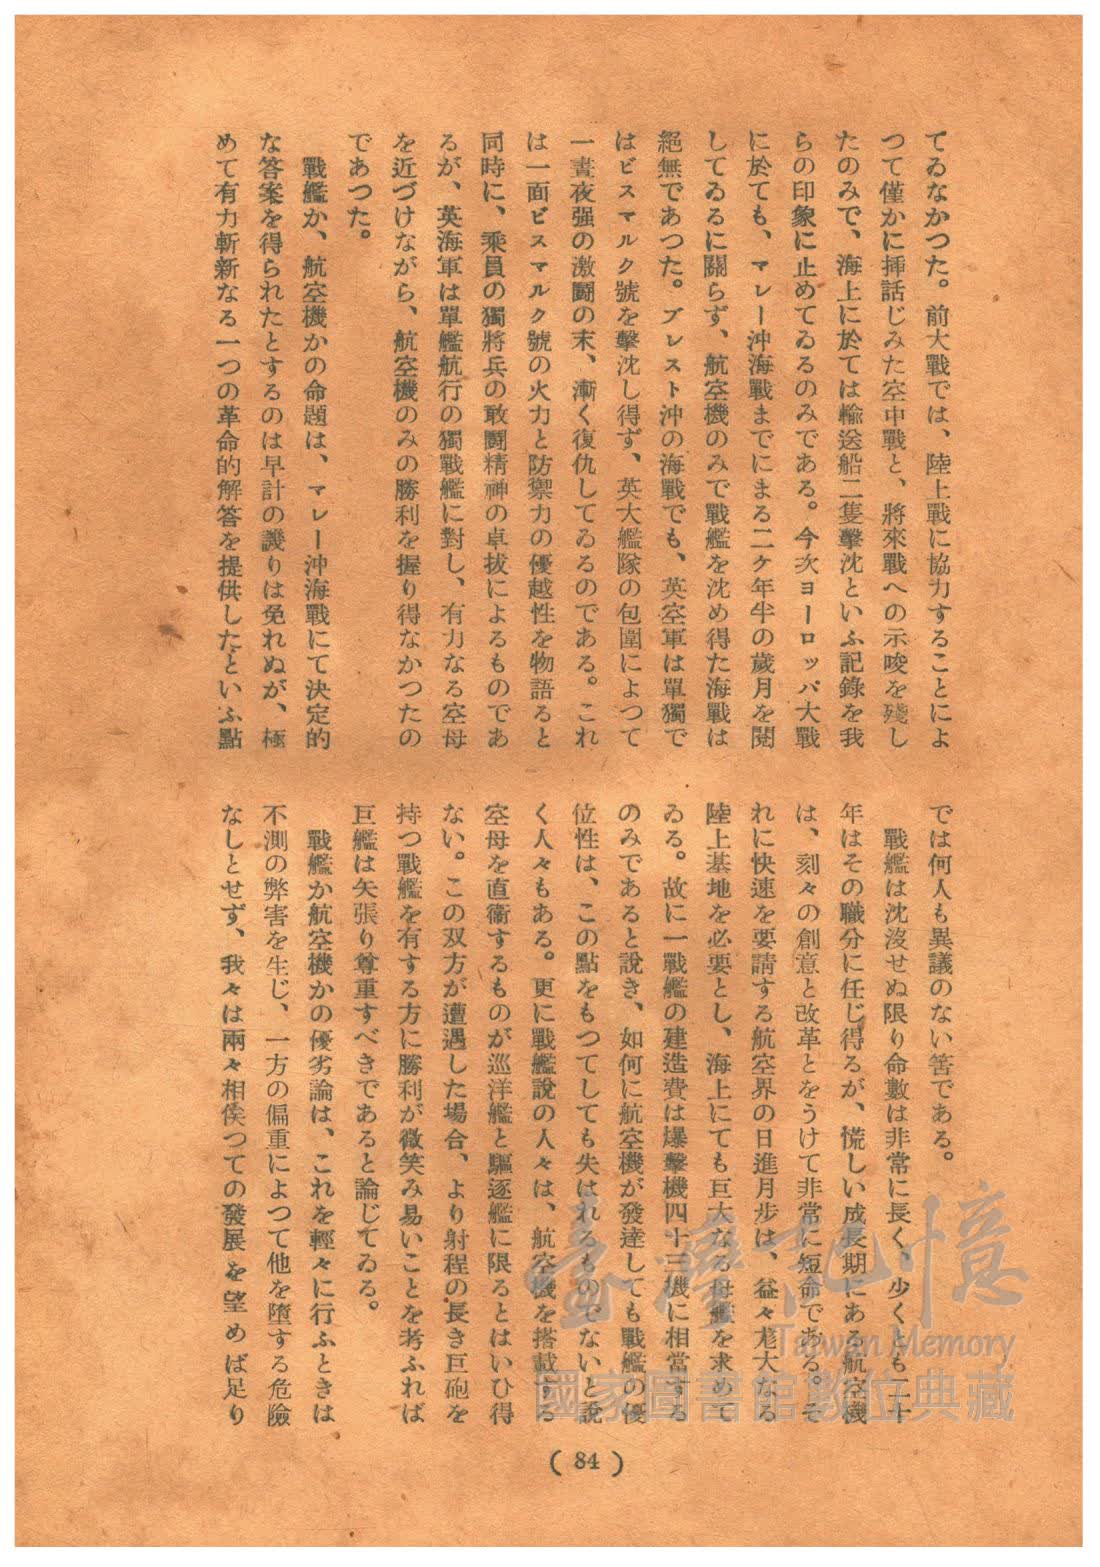 てゐなかつた。前大戰では、陸上戰に協力することによ
つて僅かに揷話じみた空中戰と、將來戰への示唆を殘し
たのみで、海上に於ては輸送船二隻擊沈といふ記錄を我
らの印象に止めてゐるのみである。今次ヨーロッパ大戰
に於ても、マレー沖海戰までにまる二ケ年半の歲月を閱
してゐるに關らず、航空機のみで戰艦を沈め得た海戰は
絕無であつた。ブレスト沖の海戰でも、英空軍は單獨で
はビスマルク號を擊沈し得ず、英大艦隊の包圍によつて
一晝夜强の激鬪の末、漸く復仇してゐるのである。これ
は一面ビスマルク號の火力と防禦力の優越性を物語ると
同時に、乘員の獨將兵の敢鬪精神の卓拔によるものであ
るが、英海軍は單艦航行の獨戰艦に對し、有力なる空母
を近づけながら、航空機のみの勝利を握り得なかつたの
であつた。
戰艦か、航空機かの命題は、マレー沖海戰にて決定的
な答案を得られたとするのは早計の譏りは免れぬが、極
めて有力斬新なる一つの革命的解答を提供したといふ點
では何人も異議のない筈である。
戰艦は沈沒せぬ限り命數は非常に長く、少くとも二十
年はその職分に任じ得るが、慌しい成長期にある航空機
は、刻々の創意と改革とをうけて非常に短命である。そ
れに快速を要請する航空界の日進月步は、益々尨大なる
陸上基地を必要とし、海上にても巨大なる母艦を求めて
ゐる。故に一戰艦の建造費は爆擊機四十三機に相當する
のみであると說き、如何に航空機が發達しても戰艦の優
位性は、この點をもつてしても失はれるものでないと說
く人々もある。更に戰艦說の人々は、航空機を搭載する
空母を直衞するものが巡洋艦と驅逐艦に限るとはいひ得
ない。この双方が遭遇した場合、より射程の長き巨砲を
持つ戰艦を有する方に勝利が微笑み易いことを考ふれば
巨艦は矢張り尊重すべきであると論じてゐる。
戰艦か航空機かの優劣論は、これを輕々に行ふときは
不測の弊害を生じ、一方の偏重によつて他を墮する危險
なしとせず、我々は兩々相俟つての發展を望めば足り
(84)
臺灣記憶
Taiwan Memory
國家圖書館數位典藏